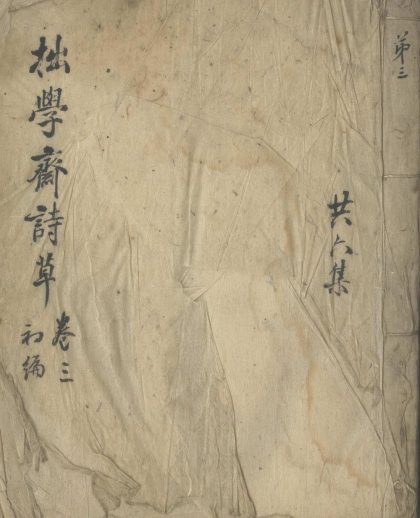 第三
共六集
拙學齋詩草
卷三
初編